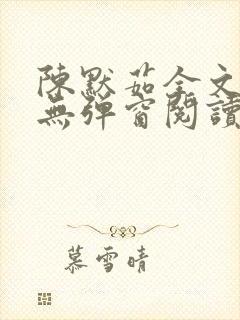 陳默茹全文
無彈窗閱讀
慕雪晴